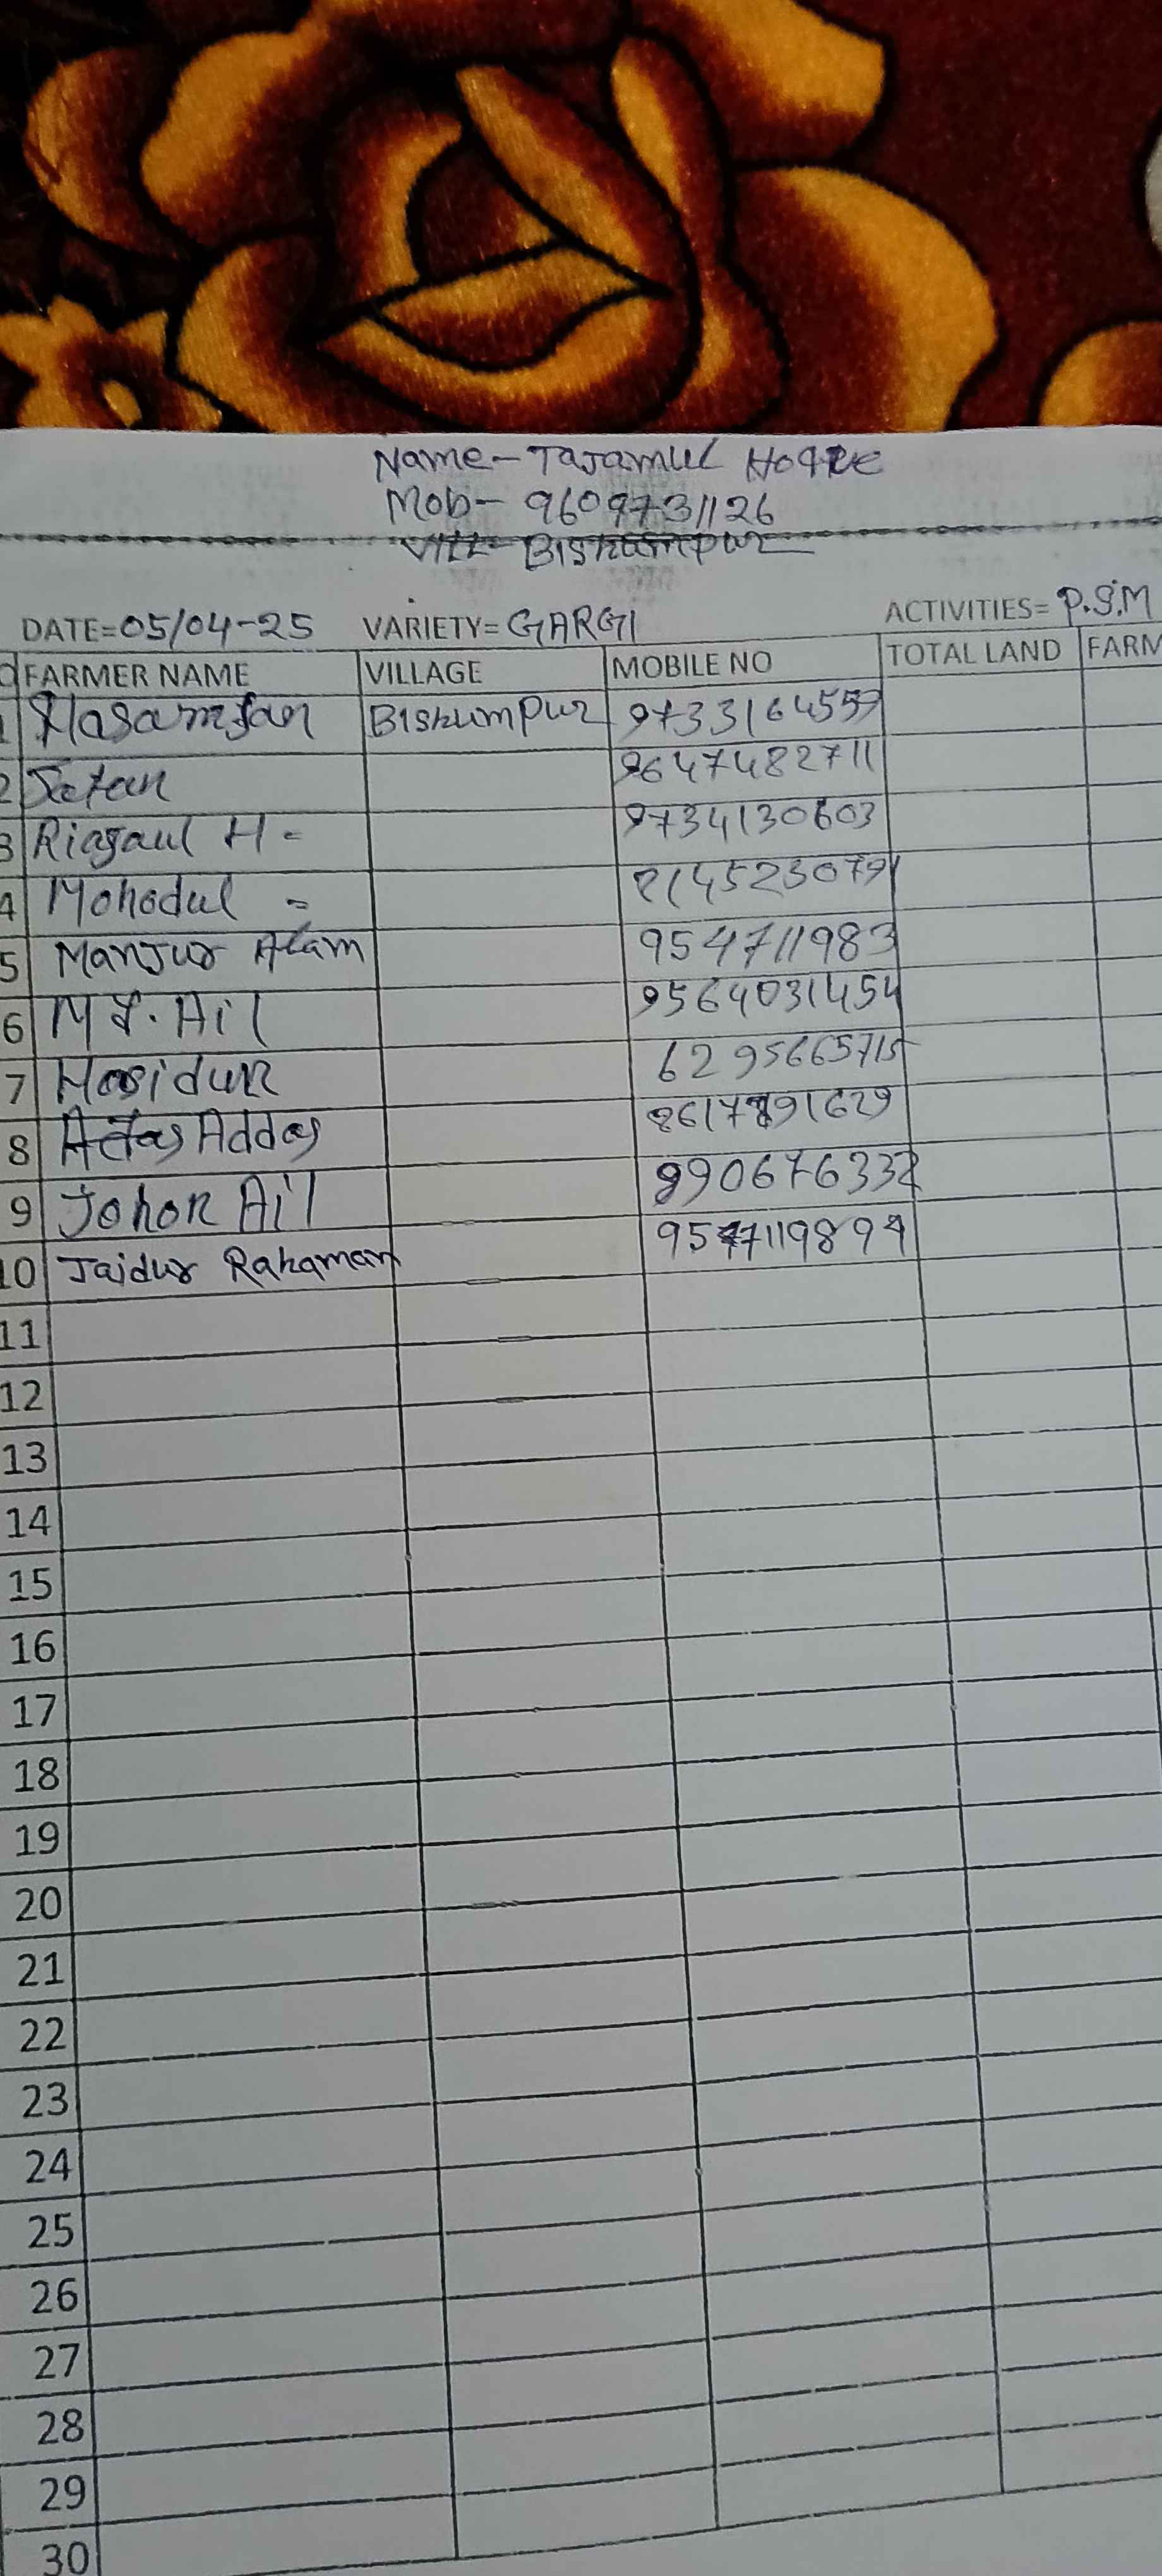 Name- Tajamul Hoque
Mob- 9609731126
Vill- Biskumpur
DATE=05/04-25 VARIETY= GARGI ACTIVITIES= P.S.M
FARMER NAME VILLAGE MOBILE NO TOTAL LAND FARM
1 Hasamfan Biskumpur
2 9647482711
3 Riagaul H- 9734130603
4 Mohodul =
5 Manjur Alam 954711983
6 Md. Ail 9564031454
7 Hosidur 6295665715
8 Addas
9 Johor Ail 990676332
10 Jaidur Rahaman
11
12
13
14
15
16
17
18
19
20
21
22
23
24
25
26
27
28
29
30